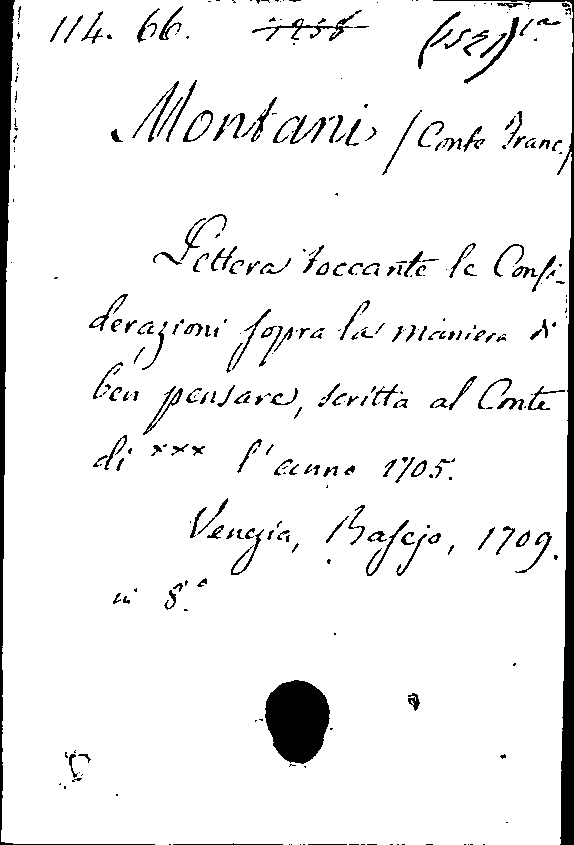 114. 66. 1258 (1521)1.a
Montani (Conte Franc.)
Lettera toccante le Consi-
derazioni sopra la maniera di
ben pensare, scritta al Conte
di xxx l'anno 1705.
Venezia, Basejo, 1709.
in 8.o